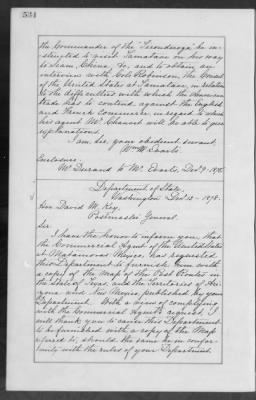 534
the Commander of the Ticonderoga be in-
structed to visit Tamatave on his way
to Siam, China, &c, and to obtain an
interview with Col. Robinson, the Consul
of the United States at Tamatave, in relation
to the difficulties with which the American
trade has to contend against the English
and French Commerce, in regard to which
his agent Mr. Chancot will be able to give
explanations.
I am, Sir, your obedient servant,
Wm. M. Evarts.
Enclosure:
Mr. Durand to Mr. Evarts, Dec. 9, 1878.
Department of State,
Washington Dec. 12 - 1878.
Hon. David M. Key,
Postmaster General.
Sir:
I have the honor to inform you that
the Commercial Agent of the United States
at Matamoras, Mexico, has requested
this Department to furnish him with
a copy of the Map of the Post Routes in
the State of Texas, and the Territories of Ari-
zona and New Mexico, published by your
Department. With a view of complying
with the Commercial Agent's request, I
will thank you to cause this Department
to be furnished with a copy of the Map
referred to, should the same be in confor-
mity with the rules of your Department.